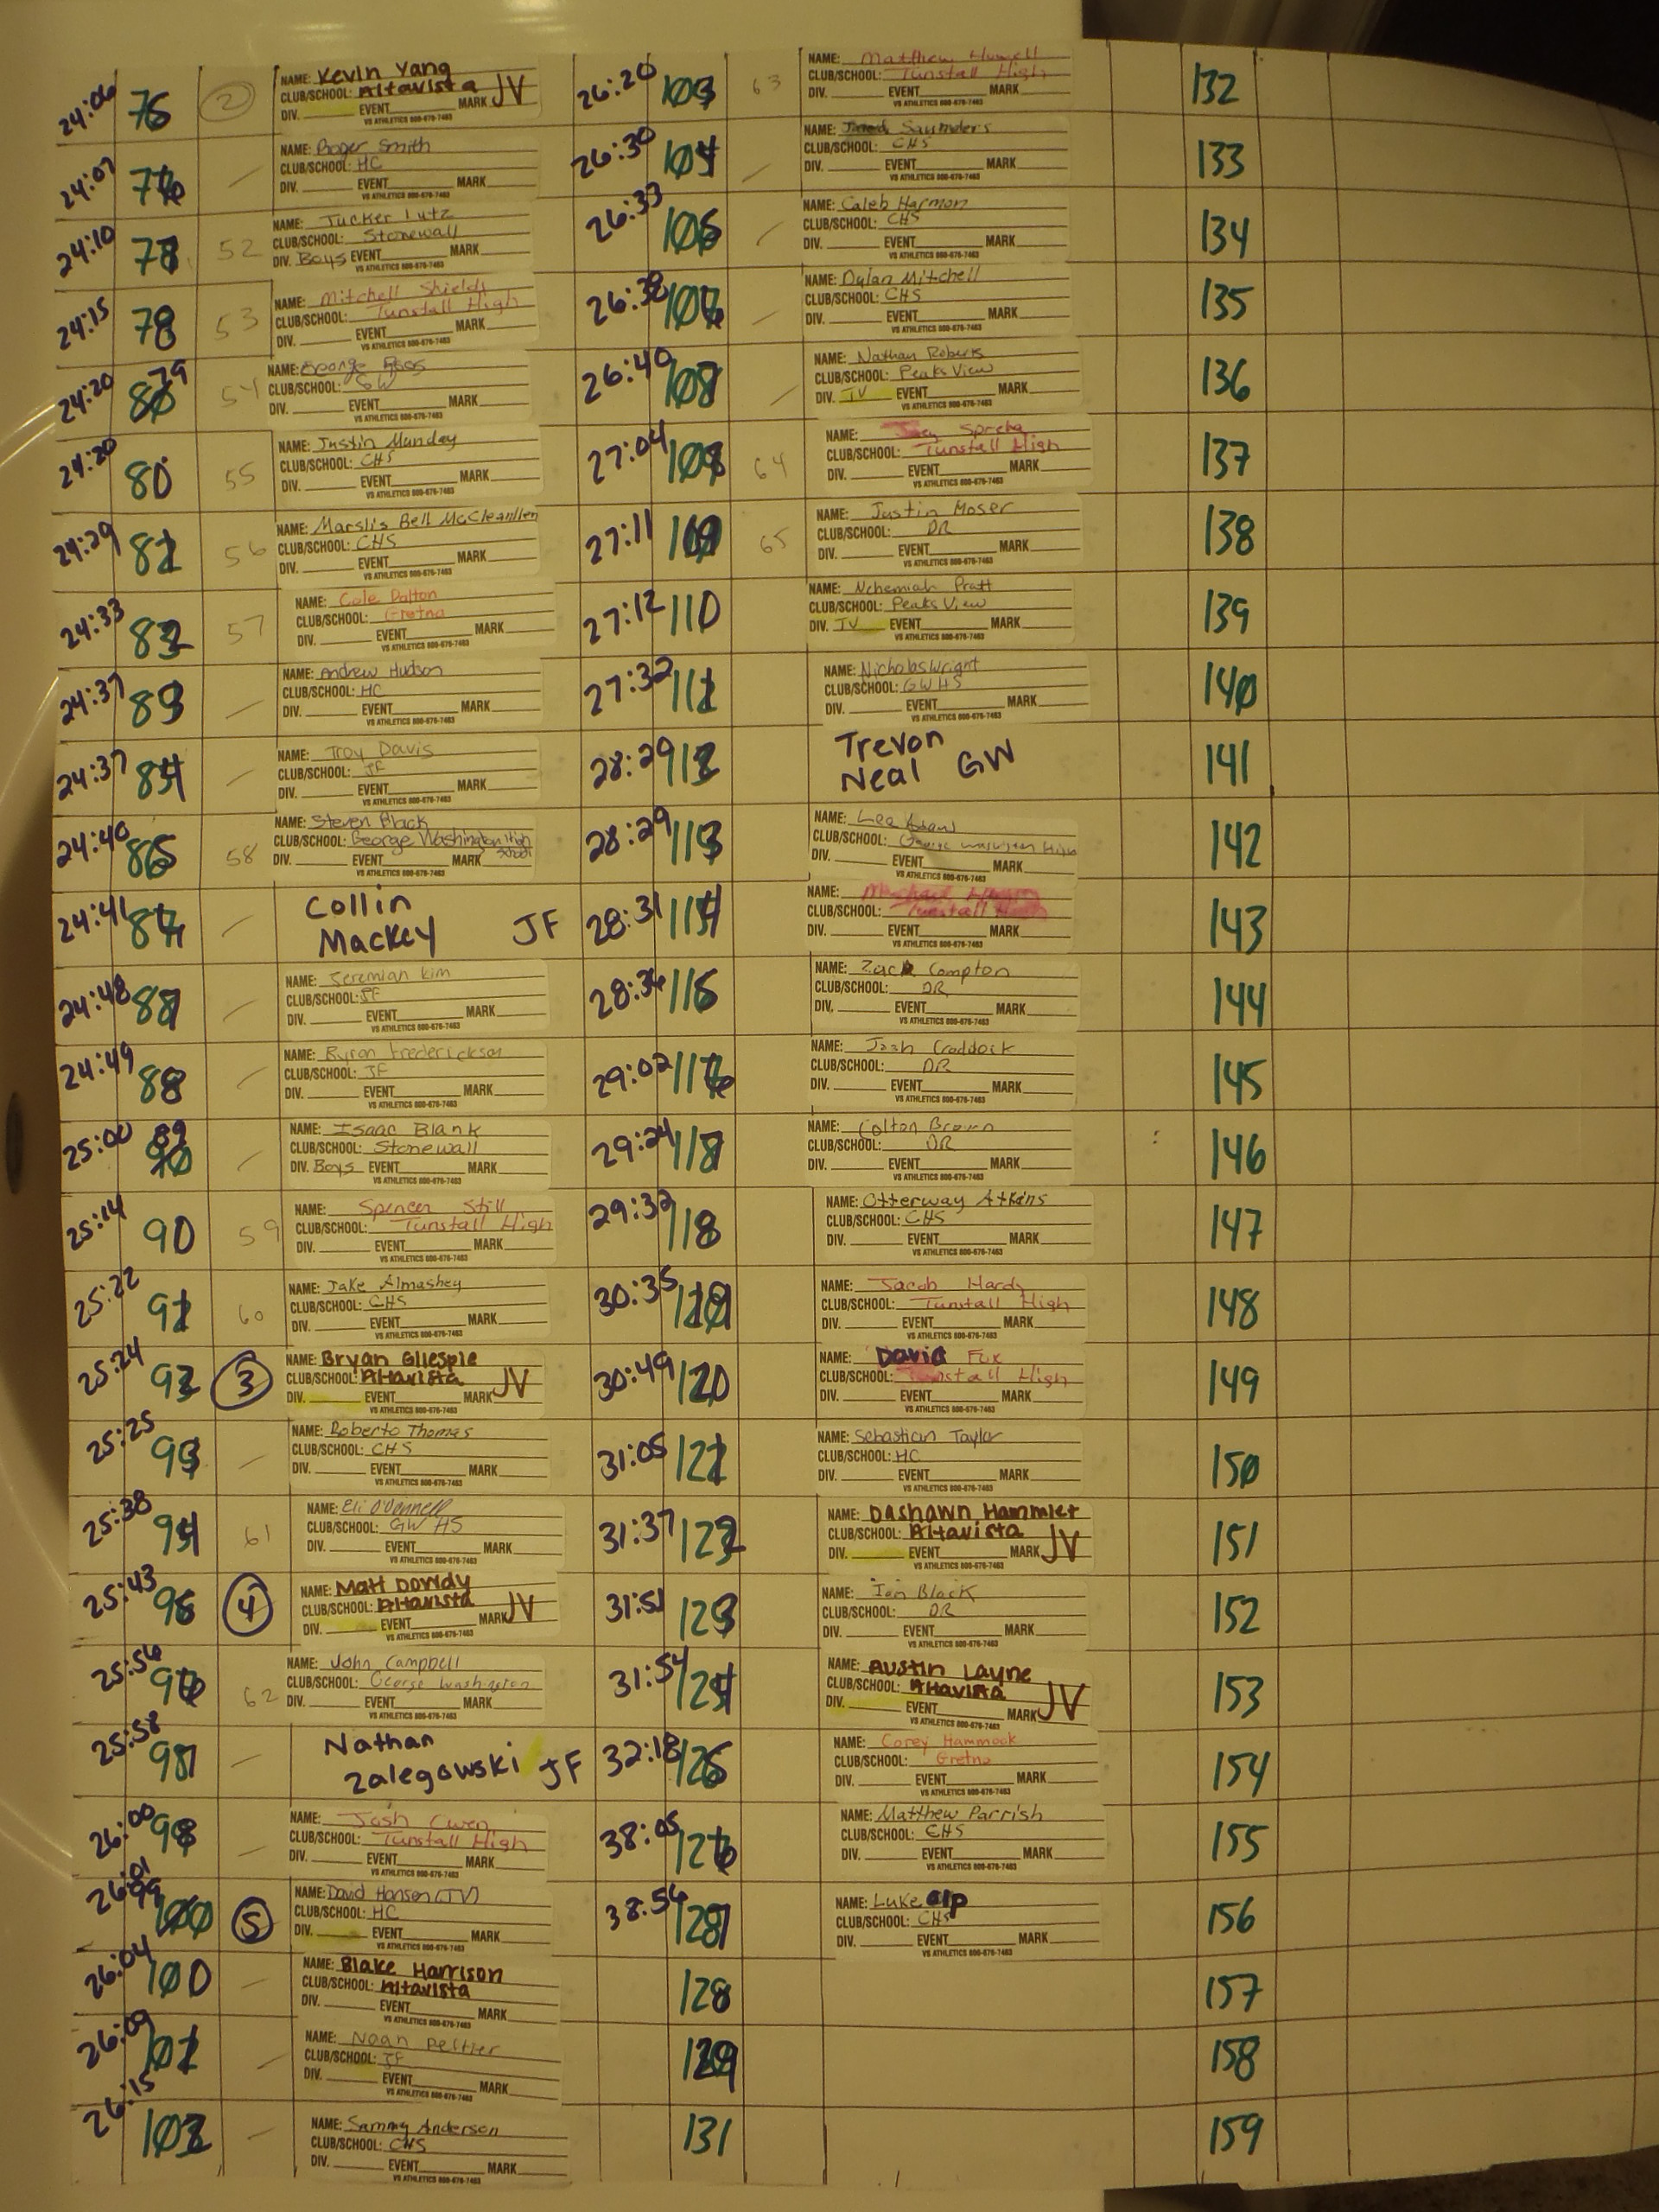 24:06 75 2 NAME: Kevin Yang
CLUB/SCHOOL: Altavista
DIV. EVENT MARK JV
VS ATHLETICS 800-676-7463
24:07 76 NAME: Roger Smith
CLUB/SCHOOL: HC
DIV. EVENT MARK
VS ATHLETICS 800-676-7463
24:10 77 52 NAME: Tucker Lutz
CLUB/SCHOOL: Stonewall
DIV. Boys EVENT MARK
VS ATHLETICS 800-676-7463
24:15 78 53 NAME: Mitchell Shields
CLUB/SCHOOL: Tunstall High
DIV. EVENT MARK
VS ATHLETICS 800-676-7463
24:20 79 54 NAME: George
CLUB/SCHOOL: GW
DIV. EVENT MARK
VS ATHLETICS 800-676-7463
24:20 80 55 NAME: Justin Munday
CLUB/SCHOOL: CHS
DIV. EVENT MARK
VS ATHLETICS 800-676-7463
24:29 81 56 NAME: Marslis Bell McCleanllen
CLUB/SCHOOL: CHS
DIV. EVENT MARK
VS ATHLETICS 800-676-7463
24:33 82 57 NAME: Cole Dalton
CLUB/SCHOOL: Gretna
DIV. EVENT MARK
VS ATHLETICS 800-676-7463
24:37 83 NAME: Andrew Hudson
CLUB/SCHOOL: HC
DIV. EVENT MARK
VS ATHLETICS 800-676-7463
24:37 84 NAME: Troy Davis
CLUB/SCHOOL: JF
DIV. EVENT MARK
VS ATHLETICS 800-676-7463
24:40 85 58 NAME: Steven Black
CLUB/SCHOOL: George Washington High School
DIV. EVENT MARK
VS ATHLETICS 800-676-7463
24:41 86 Collin
Mackey JF
24:48 87 NAME: Jeremiah Kim
CLUB/SCHOOL: JF
DIV. EVENT MARK
VS ATHLETICS 800-676-7463
24:49 88 NAME: Byron Frederickson
CLUB/SCHOOL: JF
DIV. EVENT MARK
VS ATHLETICS 800-676-7463
25:00 89 NAME: Isaac Blank
CLUB/SCHOOL: Stonewall
DIV. Boys EVENT MARK
VS ATHLETICS 800-676-7463
25:14 90 59 NAME: Spencer Still
CLUB/SCHOOL: Tunstall High
DIV. EVENT MARK
VS ATHLETICS 800-676-7463
25:22 91 60 NAME: Jake Almashey
CLUB/SCHOOL: CHS
DIV. EVENT MARK
VS ATHLETICS 800-676-7463
25:24 92 3 NAME: Bryan Gllespie
CLUB/SCHOOL: Altavista
DIV. EVENT MARK JV
VS ATHLETICS 800-676-7463
25:25 93 NAME: Roberto Thomas
CLUB/SCHOOL: CHS
DIV. EVENT MARK
VS ATHLETICS 800-676-7463
25:38 94 61 NAME: Eli O'Donnell
CLUB/SCHOOL: GW HS
DIV. EVENT MARK
VS ATHLETICS 800-676-7463
25:43 95 4 NAME: Matt Dowdy
CLUB/SCHOOL: Altavista
DIV. EVENT MARK JV
VS ATHLETICS 800-676-7463
25:56 96 62 NAME: John Campbell
CLUB/SCHOOL: George Washington
DIV. EVENT MARK
VS ATHLETICS 800-676-7463
25:58 97 Nathan
Zalegowski JF
26:00 98 NAME: Josh Owen
CLUB/SCHOOL: Tunstall High
DIV. EVENT MARK
VS ATHLETICS 800-676-7463
26:01 99 5 NAME: David Hanson (JV)
CLUB/SCHOOL: HC
DIV. EVENT MARK
VS ATHLETICS 800-676-7463
26:04 100 NAME: Blake Harrison
CLUB/SCHOOL: Altavista
DIV. EVENT MARK
VS ATHLETICS 800-676-7463
26:09 101 NAME: Noah Peltier
CLUB/SCHOOL: JF
DIV. EVENT MARK
VS ATHLETICS 800-676-7463
26:15 102 NAME: Sammy Anderson
CLUB/SCHOOL: CHS
DIV. EVENT MARK
VS ATHLETICS 800-676-7463
26:20 103 63 NAME: Matthew Howell
CLUB/SCHOOL: Tunstall High
DIV. EVENT MARK
VS ATHLETICS 800-676-7463
26:30 104 NAME: Saunders
CLUB/SCHOOL: CHS
DIV. EVENT MARK
VS ATHLETICS 800-676-7463
26:33 105 NAME: Caleb Harmon
CLUB/SCHOOL: CHS
DIV. EVENT MARK
VS ATHLETICS 800-676-7463
26:38 106 NAME: Dylan Mitchell
CLUB/SCHOOL: CHS
DIV. EVENT MARK
VS ATHLETICS 800-676-7463
26:40 107 NAME: Nathan Roberts
CLUB/SCHOOL: Peaks View
DIV. JV EVENT MARK
VS ATHLETICS 800-676-7463
27:04 108 64 NAME: Spreha
CLUB/SCHOOL: Tunstall High
DIV. EVENT MARK
VS ATHLETICS 800-676-7463
27:11 109 65 NAME: Justin Moser
CLUB/SCHOOL: DR
DIV. EVENT MARK
VS ATHLETICS 800-676-7463
27:12 110 NAME: Nehemiah Pratt
CLUB/SCHOOL: Peaks View
DIV. JV EVENT MARK
VS ATHLETICS 800-676-7463
27:32 111 NAME: Nicholas Wright
CLUB/SCHOOL: GWHS
DIV. EVENT MARK
VS ATHLETICS 800-676-7463
28:29 112 Trevon
Neal GW
28:29 113 NAME: Lee
CLUB/SCHOOL: George Washington High
DIV. EVENT MARK
VS ATHLETICS 800-676-7463
28:31 114 NAME: Michael
CLUB/SCHOOL: Tunstall High
DIV. EVENT MARK
VS ATHLETICS 800-676-7463
28:36 115 NAME: Zack Compton
CLUB/SCHOOL: DR
DIV. EVENT MARK
VS ATHLETICS 800-676-7463
29:02 116 NAME: Josh Craddock
CLUB/SCHOOL: DR
DIV. EVENT MARK
VS ATHLETICS 800-676-7463
29:24 117 NAME: Colton Brown
CLUB/SCHOOL: DR
DIV. EVENT MARK
VS ATHLETICS 800-676-7463
29:32 118 NAME: Otterway Atkins
CLUB/SCHOOL: CHS
DIV. EVENT MARK
VS ATHLETICS 800-676-7463
30:35 119 NAME: Jacob Hardy
CLUB/SCHOOL: Tunstall High
DIV. EVENT MARK
VS ATHLETICS 800-676-7463
30:49 120 NAME: David Fox
CLUB/SCHOOL: Tunstall High
DIV. EVENT MARK
VS ATHLETICS 800-676-7463
31:05 121 NAME: Sebastian Taylor
CLUB/SCHOOL: HC
DIV. EVENT MARK
VS ATHLETICS 800-676-7463
31:37 122 NAME: Dashawn Hammlet
CLUB/SCHOOL: Altavista
DIV. EVENT MARK JV
VS ATHLETICS 800-676-7463
31:51 123 NAME: Ian Black
CLUB/SCHOOL: DR
DIV. EVENT MARK
VS ATHLETICS 800-676-7463
31:54 124 NAME: Austin Layne
CLUB/SCHOOL: Altavista
DIV. EVENT MARK JV
VS ATHLETICS 800-676-7463
32:18 125 NAME: Corey Hammock
CLUB/SCHOOL: Gretna
DIV. EVENT MARK
VS ATHLETICS 800-676-7463
38:05 126 NAME: Matthew Parrish
CLUB/SCHOOL: CHS
DIV. EVENT MARK
VS ATHLETICS 800-676-7463
38:54 127 NAME: Luke Clp
CLUB/SCHOOL: CHS
DIV. EVENT MARK
VS ATHLETICS 800-676-7463
128
129
131
132
133
134
135
136
137
138
139
140
141
142
143
144
145
146
147
148
149
150
151
152
153
154
155
156
157
158
159